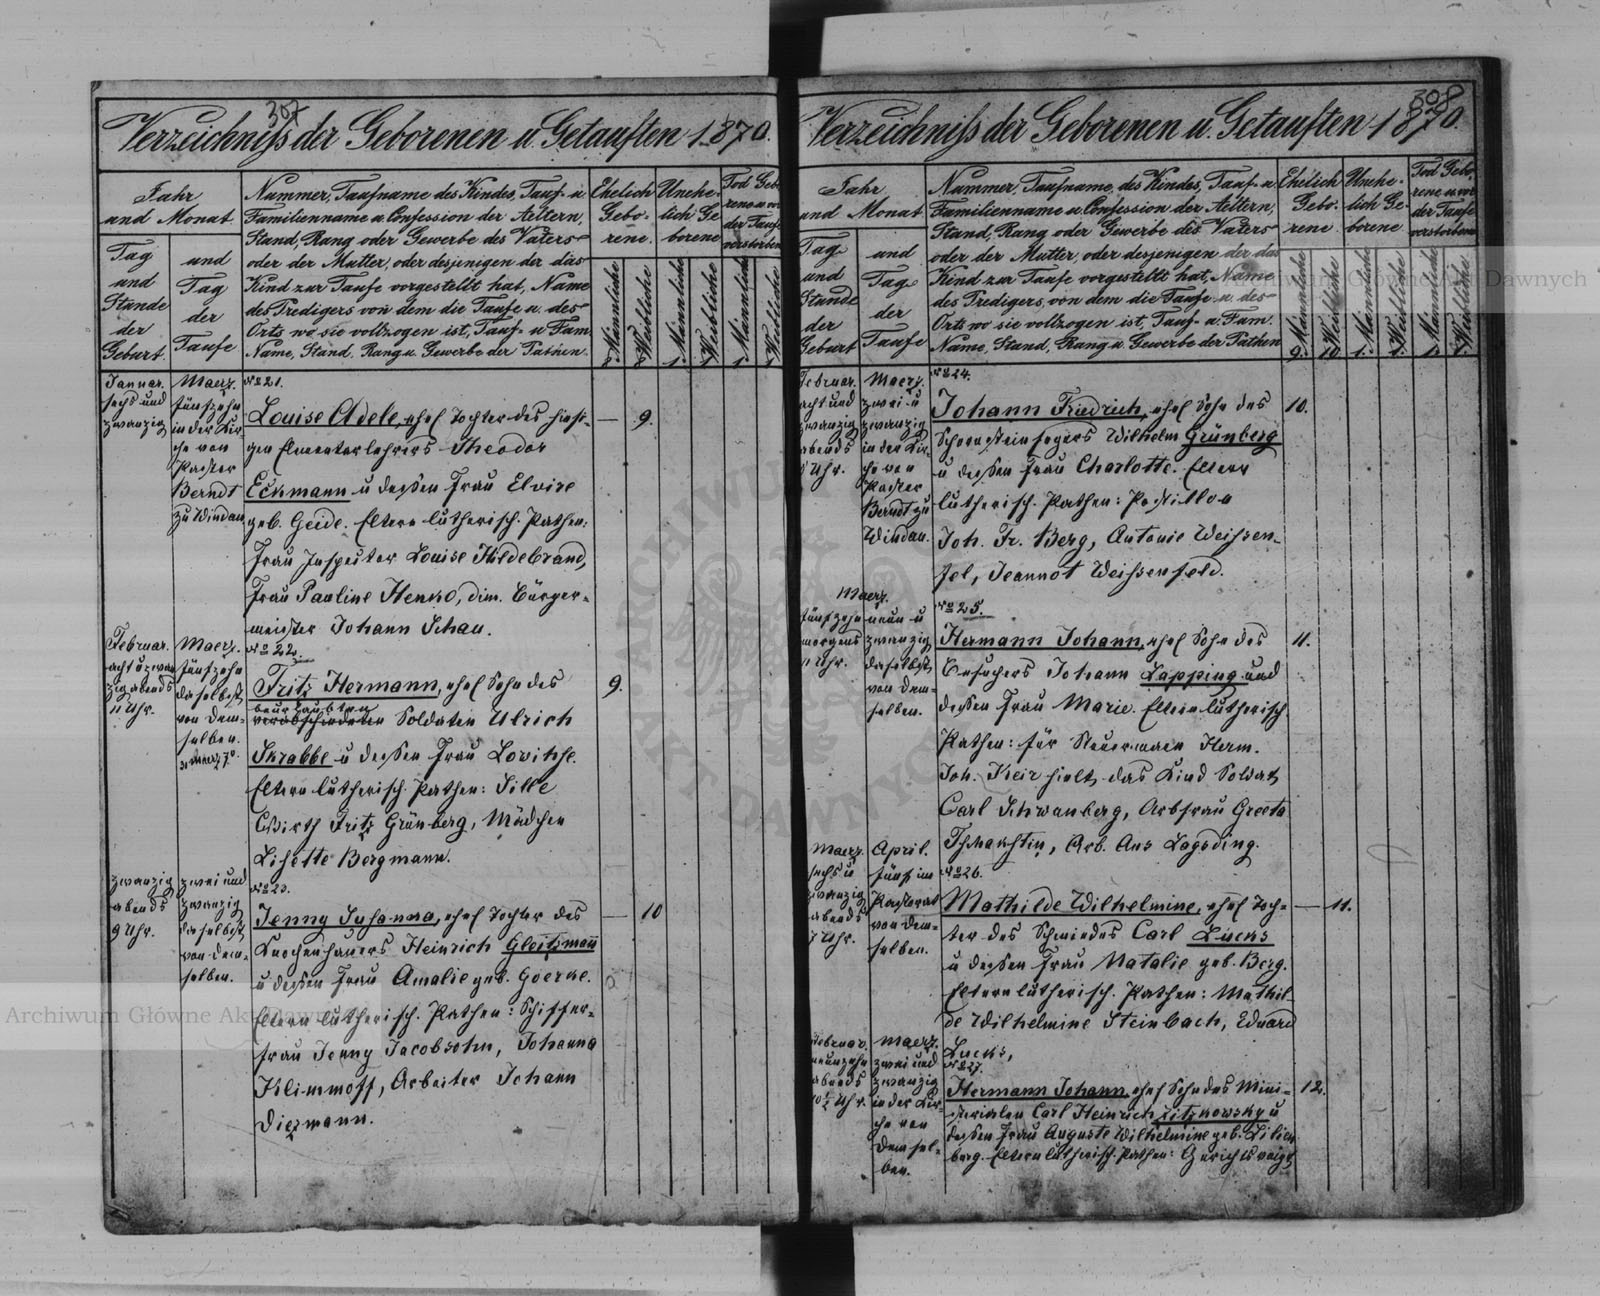 307
Verzeichniß der Geborenen u. Getauften 1870.
Jahr
und Monat
Tag
und
Stunde
der
Geburt.
und
Tag
der
Taufe
Nummer, Taufname des Kindes, Tauf- u
Familienname u. Confession der Aeltern,
Stand, Rang oder Gewerbe des Vaters
oder der Mutter, oder desjenigen der das
Kind zur Taufe vorgestellt hat, Name
des Predigers von dem die Taufe u. des
Orts wo sie vollzogen ist, Tauf- u Fam.
Name, Stand, Rang u. Gewerbe der Pathen.
Ehelich
Gebo-
rene.
Unehe-
lich Ge
borene
Tod Gebo
rene u. vor
der Taufe
verstorbene
Männliche
Weibliche
Männliche
Weibliche
Männliche
Weibliche
Januar.
sechs und
zwanzig
Maerz.
fünfzehn
in der Kir-
che von
Pastor
Berndt
zu Windau
No 21.
Louise Adele, ehel Tochter des hiesi-
gen Elementarlehrers Theodor
Eckmann u dessen Frau Elvire
geb. Geide. Eltern lutherisch. Pathen:
Frau Inspector Louise Hildebrand,
Frau Pauline Henko, dim. Bürger-
meister Johann Schau.
— 9.
Februar.
acht u zwan
zig abends
11 Uhr.
Maerz.
fünfzehn
daselbst
von dem-
selben.
No 22.
Fritz Hermann, ehel Sohn des
beurlaubten
verabschiedeten Soldaten Ulrich
Skrabbe u dessen Frau Lowihse.
Eltern lutherisch. Pathen: Sille
Wirth Fritz Grünberg, Mädchen
Lisette Bergmann.
9.
zwanzig
abends
9 Uhr.
zwei und
zwanzig
daselbst
von dem-
selben.
No 23.
Jenny Johanna, ehel Tochter des
Knochenhauers Heinrich Gleitzmann
u dessen Frau Amalie geb. Goerke.
Eltern lutherisch. Pathen: Schiffer-
frau Jenny Jacobsohn, Johanna
Klimmoff, Arbeiter Johann
Diezmann.
— 10
308
Verzeichniß der Geborenen u. Getauften 1870.
Jahr
und Monat
Tag
und
Stunde
der
Geburt
und
Tag
der
Taufe
Nummer, Taufname des Kindes, Tauf- u
Familienname u. Confession der Aeltern,
Stand, Rang oder Gewerbe des Vaters
oder der Mutter, oder desjenigen der das
Kind zur Taufe vorgestellt hat, Name
des Predigers, von dem die Taufe u. des
Orts wo sie vollzogen ist, Tauf- u. Fam.
Name, Stand, Rang u. Gewerbe der Pathen
Ehelich
Gebo-
rene.
Unehe-
lich Ge-
borene.
Tod Gebo-
rene u. vor
der Taufe
verstorbene
Männliche
Weibliche
Männliche
Weibliche
Männliche
Weibliche
9. 10 1. 1. 1. 1.
Februar.
acht und
zwanzig
abends
Uhr.
Maerz.
zwei u
zwanzig
in der Kir-
che von
Pastor
Berndt zu
Windau.
No 24.
Johann Friedrich, ehel Sohn des
Schornsteinfegers Wilhelm Grünberg
u dessen Frau Charlotte. Eltern
lutherisch. Pathen: Postillon
Joh. Fr. Berg, Antonie Weissen-
fel, Jeannot Weissenfeld.
10.
Maerz.
fünfzehn
morgens
11 Uhr.
neun u
zwanzig
daselbst
von dem-
selben.
No 25.
Hermann Johann, ehel Sohn des
Besuchers Johann Lapping und
dessen Frau Marie. Eltern lutherisch.
Pathen: für Steuermann Herm.
Joh. Keir hielt das Kind Soldat
Carl Schwanberg, Arbfrau Greeta
Tschakstin, Arb. Ans Lagsding.
11.
Maerz.
sechs u
zwanzig
abends
7 Uhr.
April.
fünf im
Pastorat
von dem-
selben.
No 26.
Mathilde Wilhelmine, ehel Toch-
ter des Schmiedes Carl Lucks
u dessen Frau Natalie geb. Berg.
Eltern lutherisch. Pathen: Mathil-
de Wilhelmine Steinbach, Eduard
Lucks,
— 11.
Februar.
neunzehn
abends
10½ Uhr.
Maerz.
zwei und
zwanzig
in der Kir-
che von
demsel-
ben.
No 27.
Hermann Johann, ehel Sohn des Mini-
sterialen Carl Heinrich Zitzkowsky u
dessen Frau Auguste Wilhelmine geb. Lilien
berg. Eltern lutherisch. Pathen: Gerichtsvoigt
12.
Archiwum Główne Akt Dawnych
Archiwum Główne Akt Dawnych